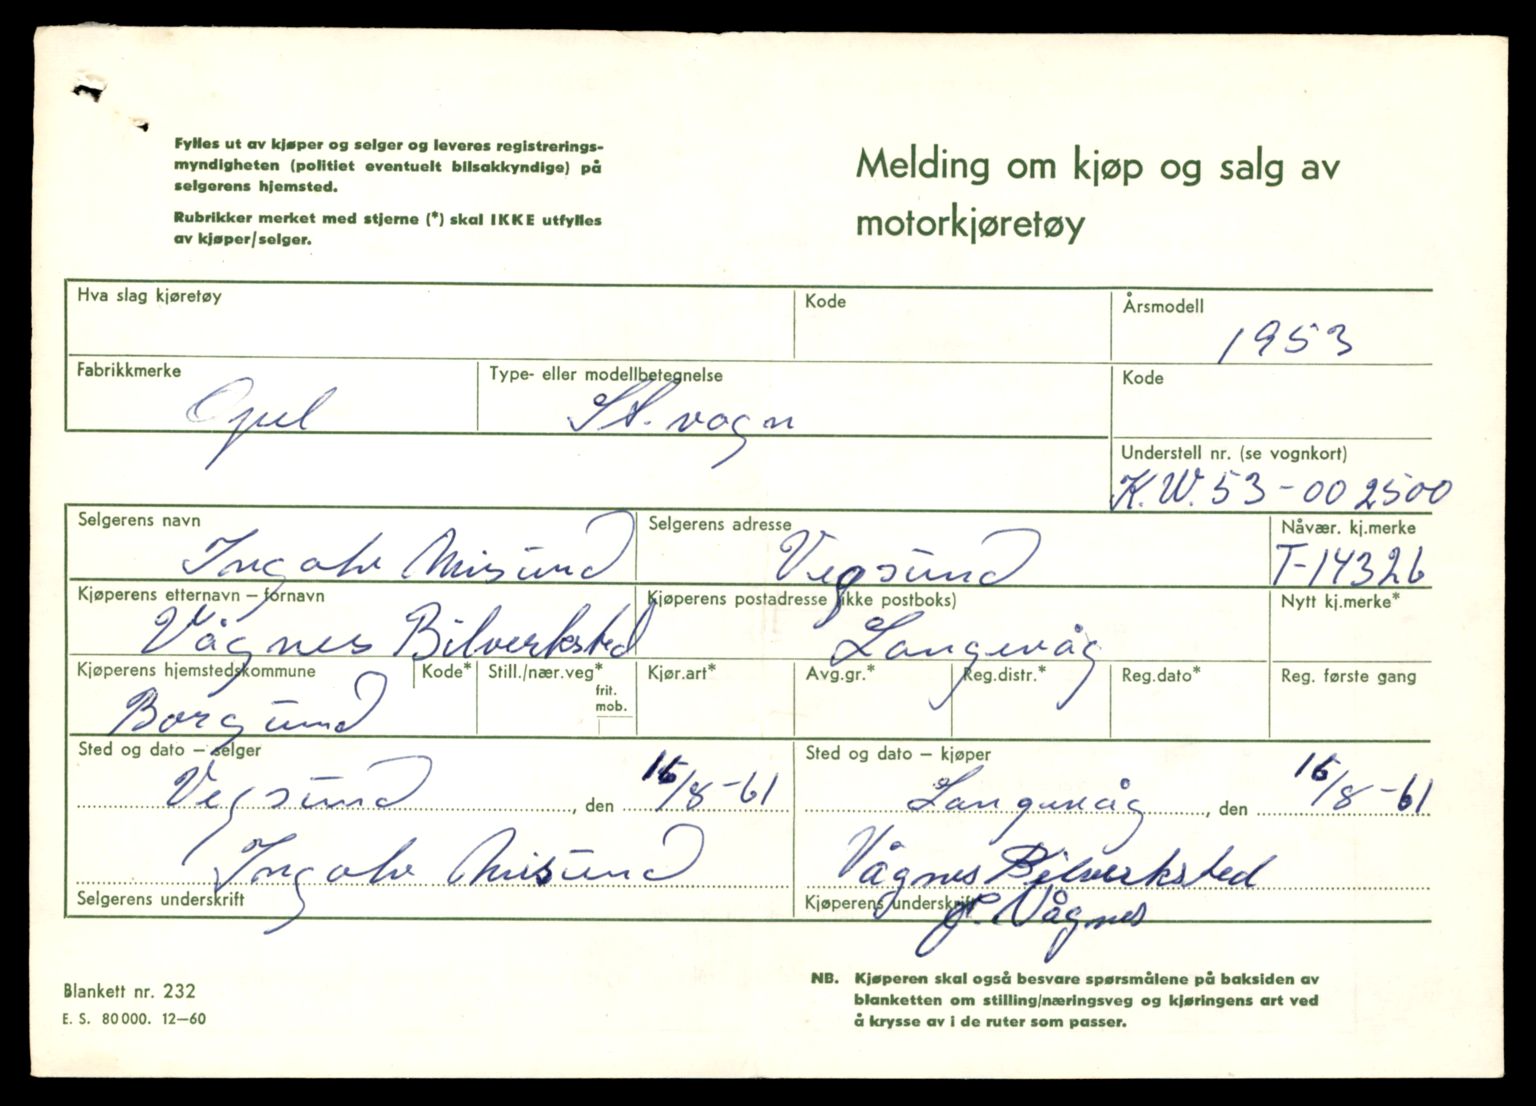 Fylles ut av kjøper og selger og leveres registrerings-
myndigheten (politiet eventuelt bilsakkyndige) på
selgerens hjemsted.
Rubrikker merket med stjerne (*) skal IKKE utfylles
av kjøper/selger.
Melding om kjøp og salg av
motorkjøretøy
Hva slag kjøretøy
Kode
Årsmodell
1953
Fabrikkmerke
Opel
Type- eller modellbetegnelse
St. vogn
Kode
Understell nr. (se vognkort)
K.W. 53-002500
Selgerens navn
Ingolv Misund
Selgerens adresse
Vegsund
Nåvær. kj.merke
T-14326
Kjøperens etternavn – fornavn
Vågnes Bilverksted
Kjøperens postadresse (ikke postboks)
Langevåg
Nytt kj.merke*
Kjøperens hjemstedskommune
Borgund
Kode*
Still./nær.veg*
frit.
mob.
Kjør.art*
Avg.gr.*
Reg.distr.*
Reg.dato*
Reg. første gang
Sted og dato – selger
Vegsund, den 16/8-61
Ingolv Misund
Selgerens underskrift
Sted og dato – kjøper
Langevåg, den 16/8-61
Vågnes Bilverksted
Kjøperens underskrift
P. Vågnes
Blankett nr. 232
E. S. 80000. 12–60
NB. Kjøperen skal også besvare spørsmålene på baksiden av
blanketten om stilling/næringsveg og kjøringens art ved
å krysse av i de ruter som passer.